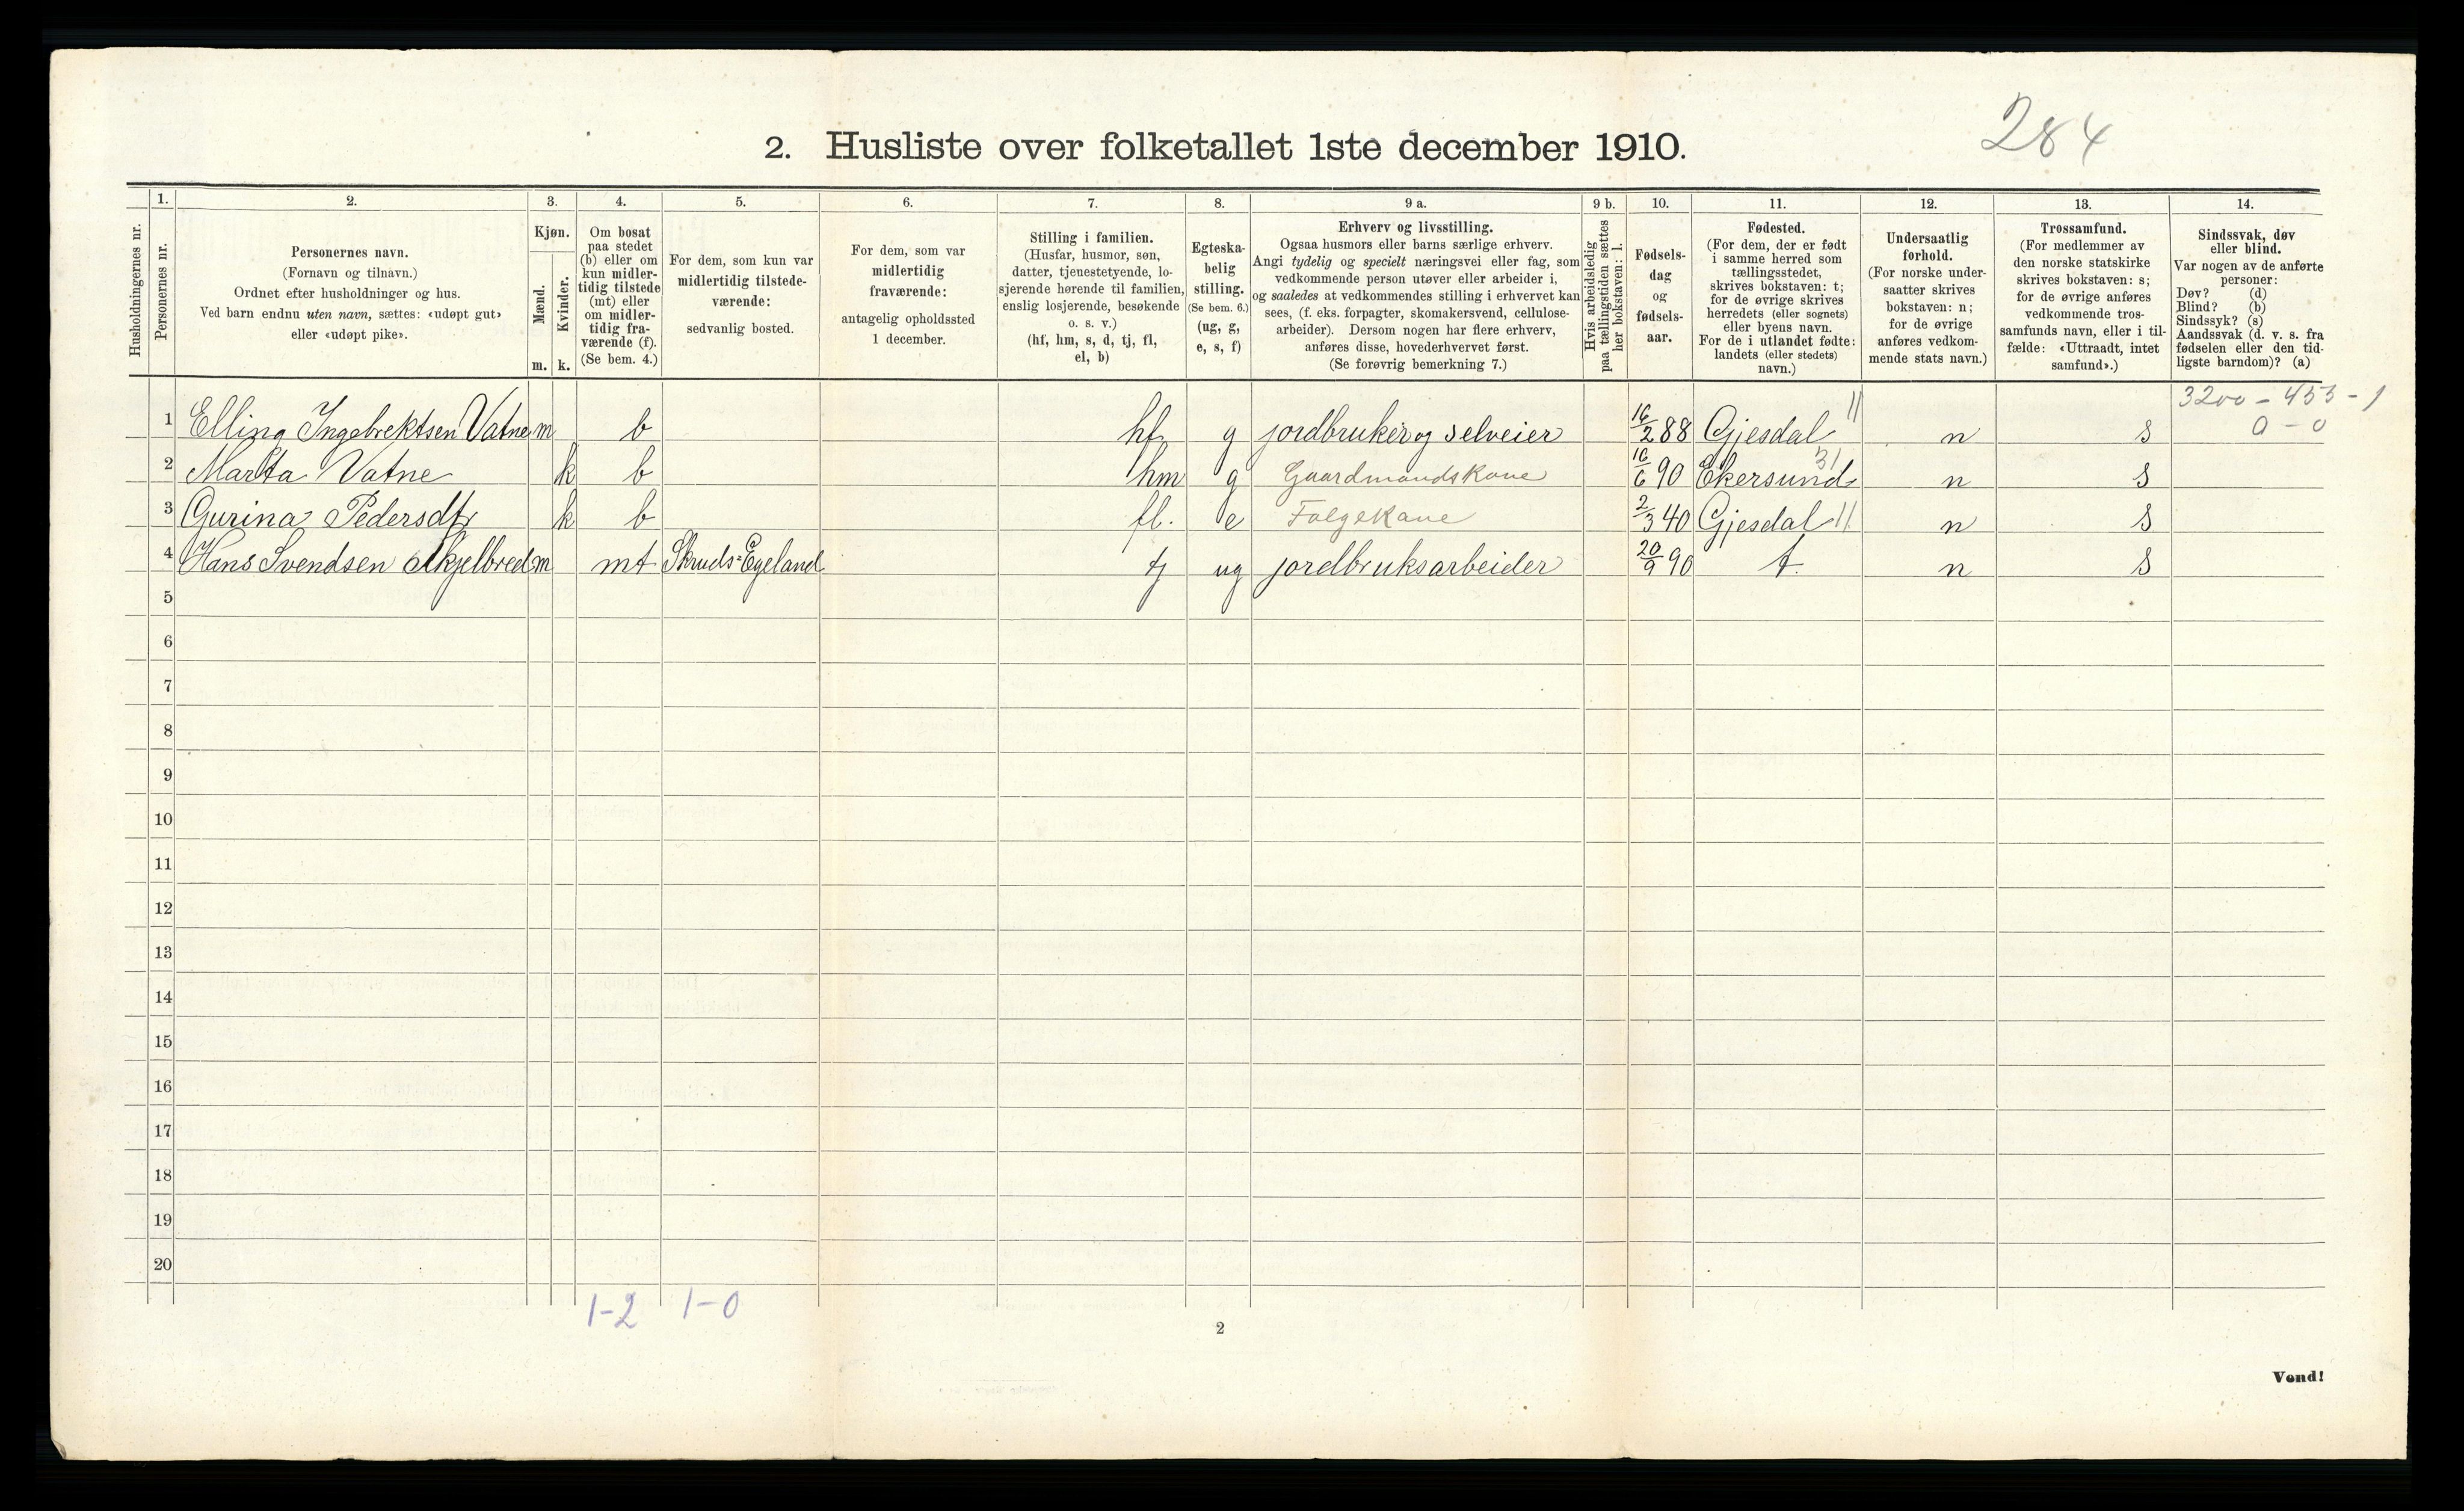 284
2. Husliste over folketallet 1ste december 1910.
Husholdningernes nr.
1.
Personernes nr.
2.
Personernes navn.
(Fornavn og tilnavn.)
Ordnet efter husholdninger og hus.
Ved barn endnu uten navn, sættes: «udøpt gut»
eller «udøpt pike».
3.
Kjøn.
Mænd.
Kvinder.
m.
k.
4.
Om bosat
paa stedet
(b) eller om
kun midler-
tidig tilstede
(mt) eller
om midler-
tidig fra-
værende (f).
(Se bem. 4.)
5.
For dem, som kun var
midlertidig tilstede-
værende:
sedvanlig bosted.
6.
For dem, som var
midlertidig
fraværende:
antagelig opholdssted
1 december.
7.
Stilling i familien.
(Husfar, husmor, søn,
datter, tjenestetyende, lo-
sjerende hørende til familien,
enslig losjerende, besøkende
o. s. v.)
(hf, hm, s, d, tj, fl,
el, b)
8.
Egteska-
belig
stilling.
(Se bem. 6.)
(ug, g,
e, s, f)
9 a.
Erhverv og livsstilling.
Ogsaa husmors eller barns særlige erhverv.
Angi tydelig og specielt næringsvei eller fag, som
vedkommende person utøver eller arbeider i,
og saaledes at vedkommendes stilling i erhvervet kan
sees, (f. eks. forpagter, skomakersvend, cellulose-
arbeider). Dersom nogen har flere erhverv,
anføres disse, hovederhvervet først.
(Se forøvrig bemerkning 7.)
9 b.
Hvis arbeidsledig
paa tællingstiden sættes
her bokstaven: l.
10.
Fødsels-
dag
og
fødsels-
aar.
11.
Fødested.
(For dem, der er født
i samme herred som
tællingsstedet,
skrives bokstaven: t;
for de øvrige skrives
herredets (eller sognets)
eller byens navn.
For de i utlandet fødte:
landets (eller stedets)
navn.)
12.
Undersaatlig
forhold.
(For norske under-
saatter skrives
bokstaven: n;
for de øvrige
anføres vedkom-
mende stats navn.)
13.
Trossamfund.
(For medlemmer av
den norske statskirke
skrives bokstaven: s;
for de øvrige anføres
vedkommende tros-
samfunds navn, eller i til-
fælde: «Uttraadt, intet
samfund».)
14.
Sindssvak, døv
eller blind.
Var nogen av de anførte
personer:
Døv? (d)
Blind? (b)
Sindssyk? (s)
Aandssvak (d. v. s. fra
fødselen eller den tid-
ligste barndom)? (a)
3200 - 453 - 1
0 - 0
1 Elling Ingebrektsen Vatne m b hf g jordbruker og selveier 16/2 88 Gjesdal 11 n s
2 Marta Vatne k b hm g Gaardmandskone 16/6 90 Ekersund 31 n s
3 Gurina Pedersdtr k b fl. e Folgekone 2/3 40 Gjesdal 11 n s
4 Hans Svendsen Skjelbred m mt Skruds=Egeland tj ug jordbruksarbeider 20/9 90 t. n s
5
6
7
8
9
10
11
12
13
14
15
16
17
18
19
20
1-2 1-0
2
Vend!